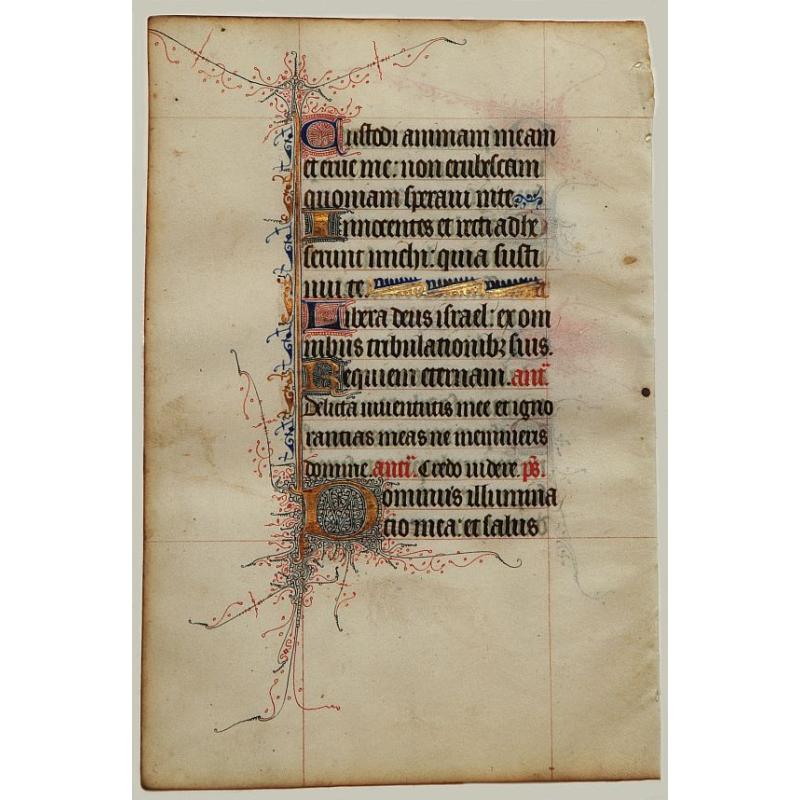 Custodi animam meam
et erue me: non erubescam
quoniam speraui inte.
Innocentes et recti adhe
serunt michi: quia susti
nui te.
Libera deus israel: ex om
nibus tribulationibꝫ suis.
Requiem eternam. antͥ.
Delicta iuuentutis mee et igno
rancias meas ne memineris
domine. antͥ. Credo uidere. pͫs.
Dominus illumina
cio mea: et salus